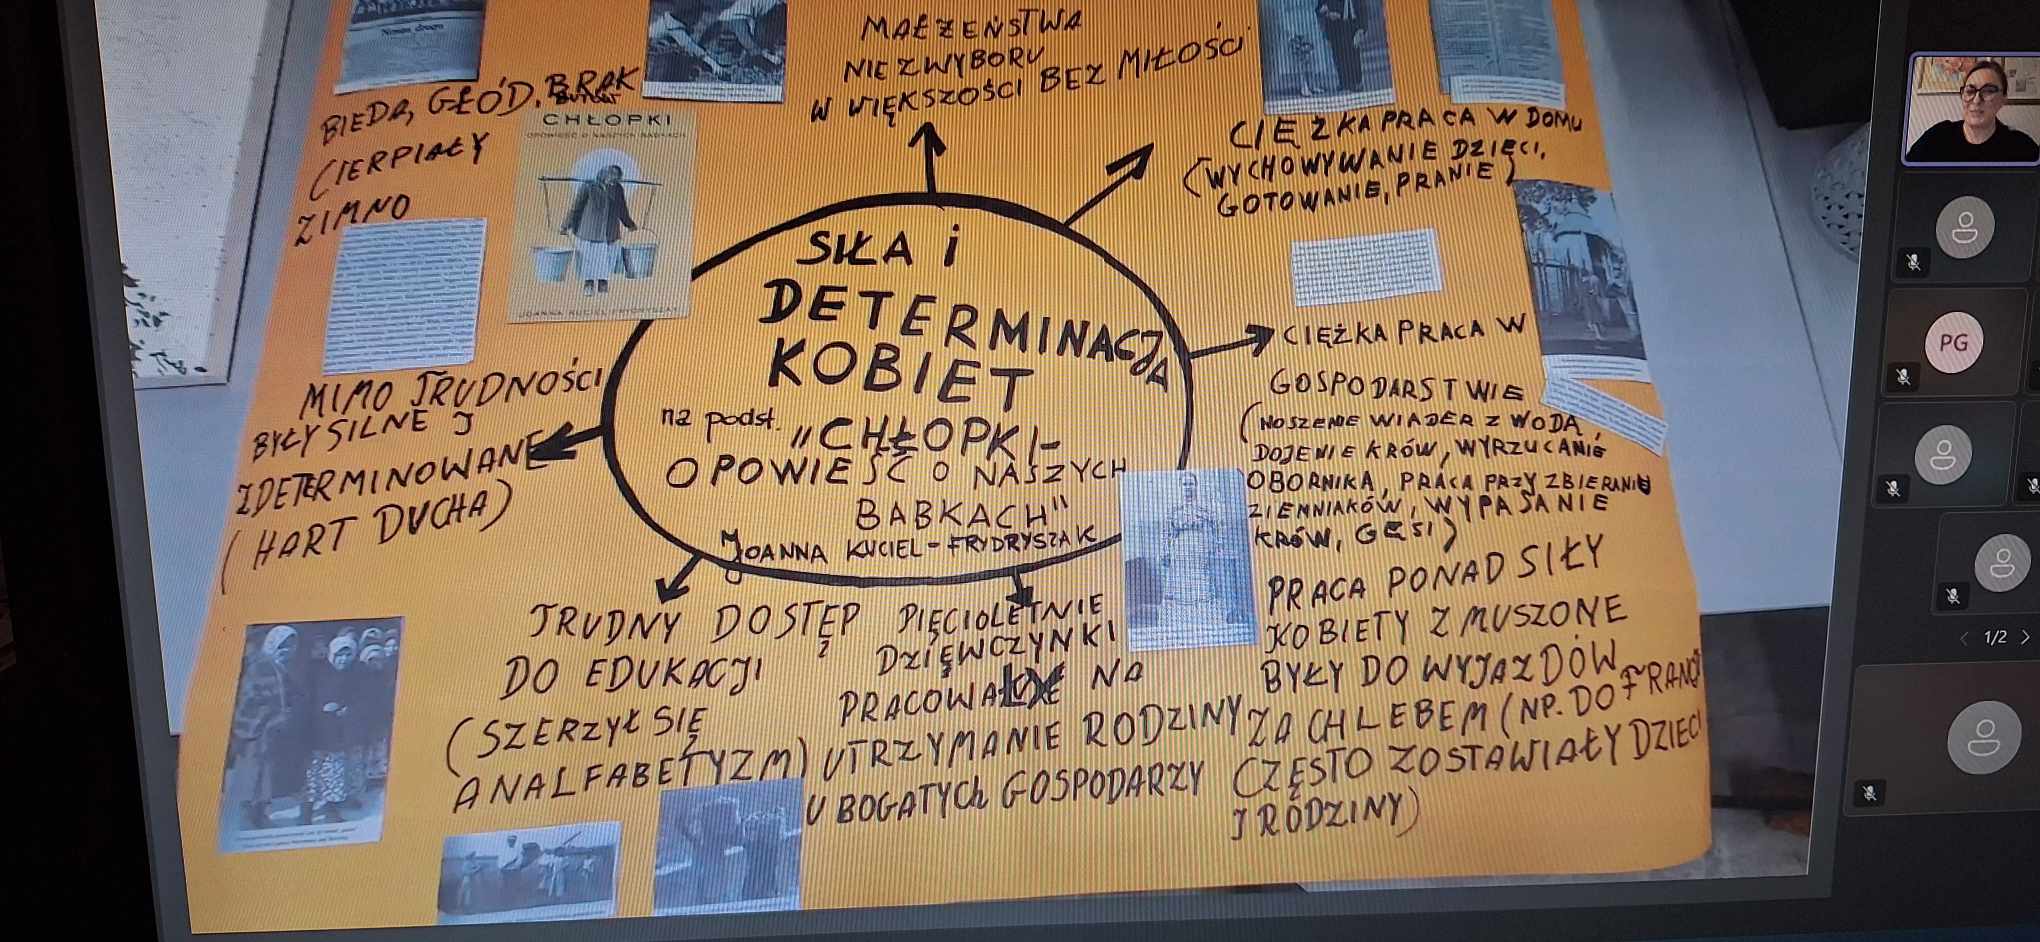 Nowa droga
BIEDA, GŁÓD, BRAK
BUTÓW
CIERPIAŁY
ZIMNO
CHŁOPKI
OPOWIEŚĆ O NASZYCH BABKACH
JOANNA KUCIEL-FRYDRYSZAK
MAŁŻEŃSTWA
NIE Z WYBORU
W WIĘKSZOŚCI BEZ MIŁOŚCI
CIĘŻKA PRACA W DOMU
(WYCHOWYWANIE DZIECI,
GOTOWANIE, PRANIE)
SIŁA i
DETERMINACJA
KOBIET
na podst. "CHŁOPKI-
OPOWIEŚĆ O NASZYCH
BABKACH"
JOANNA KUCIEL-FRYDRYSZAK
CIĘŻKA PRACA W
GOSPODARSTWIE
(NOSZENIE WIADER Z WODĄ,
DOJENIE KRÓW, WYRZUCANIE
OBORNIKA, PRACA PRZY ZBIERANIU
ZIEMNIAKÓW, WYPASANIE
KRÓW, GĘSI)
MIMO TRUDNOŚCI
BYŁY SILNE I
ZDETERMINOWANE
(HART DUCHA)
TRUDNY DOSTĘP
DO EDUKACJI
(SZERZYŁ SIĘ
ANALFABETYZM)
PIĘCIOLETNIE
DZIEWCZYNKI
PRACOWAŁY NA
UTRZYMANIE RODZINY
U BOGATYCH GOSPODARZY
PRACA PONAD SIŁY
KOBIETY ZMUSZONE
BYŁY DO WYJAZDÓW
ZA CHLEBEM (NP. DO FRANCJ
CZĘSTO ZOSTAWIAŁY DZIECI
I RODZINY)
PG
1/2